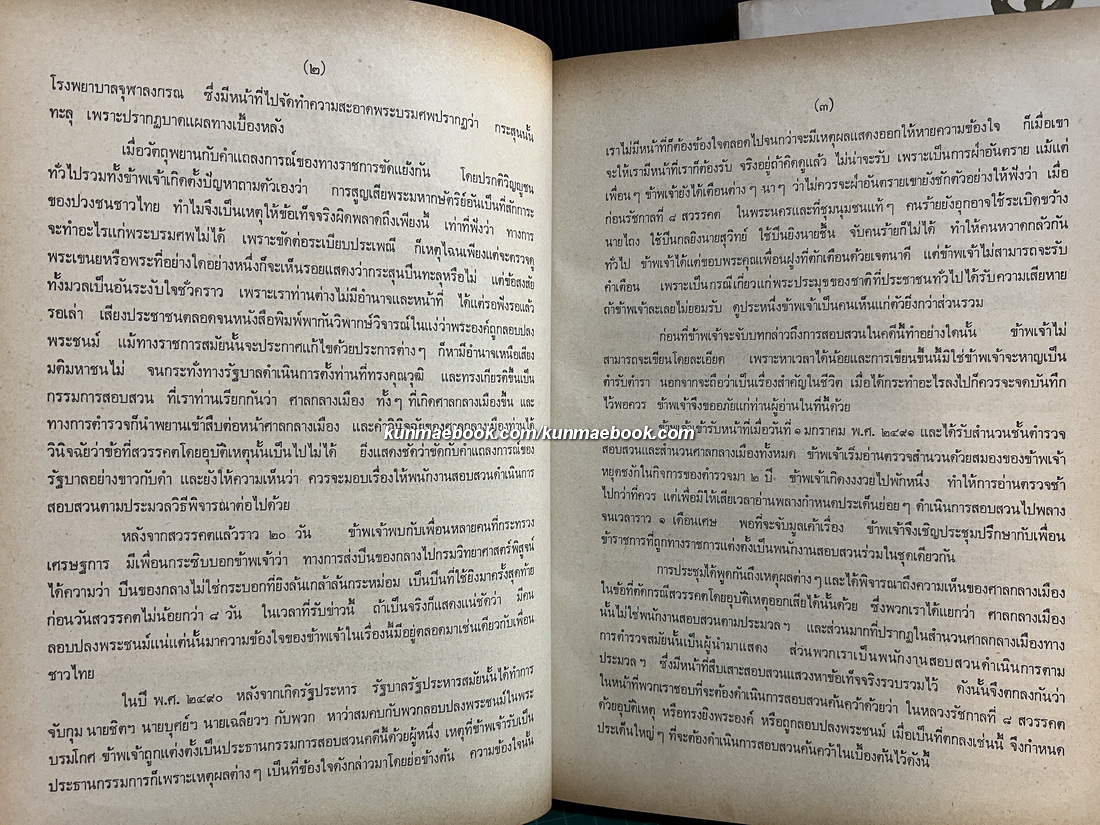 (๒)
โรงพยาบาลจุฬาลงกรณ ซึ่งมีหน้าที่ไปจัดทำความสะอาดพระบรมศพปรากฏว่า กระสุนนั้น
ทะลุ เพราะปรากฏบาดแผลทางเบื้องหลัง
เมื่อวัตถุพยานกับคำแถลงการณ์ของทางราชการขัดแย้งกัน โดยปรกติวิญญูชน
ทั่วไปรวมทั้งข้าพเจ้าเกิดตั้งปัญหาถามตัวเองว่า การสูญเสียพระมหากษัตริย์อันเป็นที่สักการะ
ของปวงชนชาวไทย ทำไมจึงเป็นเหตุให้ข้อเท็จจริงผิดพลาดถึงเพียงนี้ เท่าที่ฟังว่า ทางการ
จะทำอะไรแก่พระบรมศพไม่ได้ เพราะขัดต่อระเบียบประเพณี ก็เหตุไฉนเพียงแต่จะตรวจดู
พระเขนยหรือพระที่อย่างใดอย่างหนึ่งก็จะเห็นรอยแสดงว่ากระสุนปืนทะลุหรือไม่ แต่ข้อสงสัย
ทั้งมวลเป็นอันระงับใจชั่วคราว เพราะเราท่านต่างไม่มีอำนาจและหน้าที่ ได้แต่รอฟังรอแล้ว
รอเล่า เสียงประชาชนตลอดจนหนังสือพิมพ์พากันวิพากษ์วิจารณ์ในแง่ว่าพระองค์ถูกลอบปลง
พระชนม์ แม้ทางราชการสมัยนั้นจะประกาศแก้ไขด้วยประการต่างๆ ก็หามีอำนาจเหนือเสียง
มติมหาชนไม่ จนกระทั่งทางรัฐบาลดำเนินการตั้งท่านที่ทรงคุณวุฒิ และทรงเกียรติขึ้นเป็น
กรรมการสอบสวน ที่เราท่านเรียกกันว่า ศาลกลางเมือง ทั้งๆ ที่เกิดศาลกลางเมืองขึ้น และ
ทางการตำรวจก็นำพยานเข้าสืบต่อหน้าศาลกลางเมือง และคำวินิจฉัยของศาลกลางเมืองท่านได้
วินิจฉัยว่าข้อที่สวรรคตโดยอุบัติเหตุนั้นเป็นไปไม่ได้ ยิ่งแสดงชัดว่าขัดกับคำแถลงการณ์ของ
รัฐบาลอย่างขาวกับดำ และยังให้ความเห็นว่า ควรจะมอบเรื่องให้พนักงานสอบสวนดำเนินการ
สอบสวนตามประมวลวิธีพิจารณาต่อไปด้วย
หลังจากสวรรคตแล้วราว ๒๐ วัน ข้าพเจ้าพบกับเพื่อนหลายคนที่กระทรวง
เศรษฐการ มีเพื่อนกระซิบบอกข้าพเจ้าว่า ทางการส่งปืนของกลางไปกรมวิทยาศาสตร์พิสูจน์
ได้ความว่า ปืนของกลางไม่ใช่กระบอกที่ยิงล้นเกล้าล้นกระหม่อม เป็นปืนที่ใช้ยิงมาครั้งสุดท้าย
ก่อนวันสวรรคตไม่น้อยกว่า ๘ วัน ในเวลาที่รับข่าวนี้ ถ้าเป็นจริงก็แสดงแน่ชัดว่า มีคน
ลอบปลงพระชนม์แน่แต่นั้นมาความข้องใจของข้าพเจ้าในเรื่องนี้มีอยู่ตลอดมาเช่นเดียวกับเพื่อน
ชาวไทย
ในปี พ.ศ. ๒๔๙๐ หลังจากเกิดรัฐประหาร รัฐบาลรัฐประหารสมัยนั้นได้ทำการ
จับกุม นายชิตฯ นายบุศย์ฯ นายเฉลียวฯ กับพวก หาว่าสมคบกับพวกลอบปลงพระชนม์ในพระ
บรมโกศ ข้าพเจ้าถูกแต่งตั้งเป็นประธานกรรมการสอบสวนคดีนี้ด้วยผู้หนึ่ง เหตุที่ข้าพเจ้ารับเป็น
ประธานกรรมการก็เพราะเหตุผลต่างๆ เป็นที่ข้องใจดังกล่าวมาโดยย่อข้างต้น ความข้องใจนั้น
(๓)
เราไม่มีหน้าที่ก็ต้องข้องใจตลอดไปจนกว่าจะมีเหตุผลแสดงออกให้หายความข้องใจ ก็เมื่อเขา
จะให้เรามีหน้าที่เราก็ต้องรับ จริงอยู่ถ้าคิดดูแล้ว ไม่น่าจะรับ เพราะเป็นการฝ่าอันตราย แม้แต่
เพื่อนๆ ข้าพเจ้ายังได้เตือนต่างๆ นาๆ ว่าไม่ควรจะฝ่าอันตรายเขายังชักตัวอย่างให้ฟังว่า เมื่อ
ก่อนรัชกาลที่ ๘ สวรรคต ในพระนครและที่ชุมนุมชนแท้ๆ คนร้ายยังอุกอาจใช้ระเบิดขว้าง
นายไถง ใช้ปืนกลยิงนายสุวิทย์ ใช้ปืนยิงนายชื้น จับคนร้ายก็ไม่ได้ ทำให้คนหวาดกลัวกัน
ทั่วไป ข้าพเจ้าได้แต่ขอบพระคุณเพื่อนฝูงที่ตักเตือนด้วยเจตนาดี แต่ข้าพเจ้าไม่สามารถจะรับ
คำเตือน เพราะเป็นกรณีเกี่ยวแก่พระประมุขของชาติที่ประชาชนทั่วไปได้รับความเสียหาย
ถ้าข้าพเจ้าละเลยไม่ยอมรับ ดูประหนึ่งข้าพเจ้าเป็นคนเห็นแก่ตัวยิ่งกว่าส่วนรวม
ก่อนที่ข้าพเจ้าจะจับบทกล่าวถึงการสอบสวนในคดีนี้ทำอย่างใดนั้น ข้าพเจ้าไม่
สามารถจะเขียนโดยละเอียด เพราะหาเวลาได้น้อยและการเขียนขึ้นนี้มิใช่ข้าพเจ้าจะหาญเป็น
ตำรับตำรา นอกจากจะถือว่าเป็นเรื่องสำคัญในชีวิต เมื่อได้กระทำอะไรลงไปก็ควรจะจดบันทึก
ไว้พอควร ข้าพเจ้าจึงขออภัยแก่ท่านผู้อ่านในที่นี้ด้วย
ข้าพเจ้าเข้ารับหน้าที่เมื่อวันที่ ๑ มกราคม พ.ศ. ๒๔๙๑ และได้รับสำนวนชั้นตำรวจ
kunmaebook.com/kunmaebook.com
สอบสวนและสำนวนศาลกลางเมืองทั้งหมด ข้าพเจ้าเริ่มอ่านตรวจสำนวนด้วยสมองของข้าพเจ้า
หยุดชงักในกิจการของตำรวจมา ๒ ปี ข้าพเจ้าเกิดงงงวยไปพักหนึ่ง ทำให้การอ่านตรวจช้า
ไปกว่าที่ควร แต่เพื่อมิให้เสียเวลาอ่านพลางกำหนดประเด็นย่อยๆ ดำเนินการสอบสวนไปพลาง
จนเวลาราว ๑ เดือนเศษ พอที่จะจับมูลเค้าเรื่อง ข้าพเจ้าจึงเชิญประชุมปรึกษากับเพื่อน
ข้าราชการที่ถูกทางราชการแต่งตั้งเป็นพนักงานสอบสวนร่วมในชุดเดียวกัน
การประชุมได้พูดกันถึงเหตุผลต่างๆ และได้พิจารณาถึงความเห็นของศาลกลางเมือง
ในข้อที่ตัดกรณีสวรรคตโดยอุบัติเหตุออกเสียได้นั้นด้วย ซึ่งพวกเราได้แยกว่า ศาลกลางเมือง
นั้นไม่ใช่พนักงานสอบสวนตามประมวลฯ และส่วนมากที่ปรากฏในสำนวนศาลกลางเมืองทาง
การตำรวจสมัยนั้นเป็นผู้นำมาแสดง ส่วนพวกเราเป็นพนักงานสอบสวนดำเนินการตาม
ประมวลฯ ซึ่งมีหน้าที่สืบเสาะสอบสวนแสวงหาข้อเท็จจริงรวบรวมไว้ ดังนั้นจึงตกลงกันว่า
ในหน้าที่พวกเราชอบที่จะต้องดำเนินการสอบสวนค้นคว้าด้วยว่า ในหลวงรัชกาลที่ ๘ สวรรคต
ด้วยอุบัติเหตุ หรือทรงยิงพระองค์ หรือถูกลอบปลงพระชนม์ เมื่อเป็นที่ตกลงเช่นนี้ จึงกำหนด
ประเด็นใหญ่ๆ ที่จะต้องดำเนินการสอบสวนค้นคว้าในเบื้องต้นไว้ดังนี้